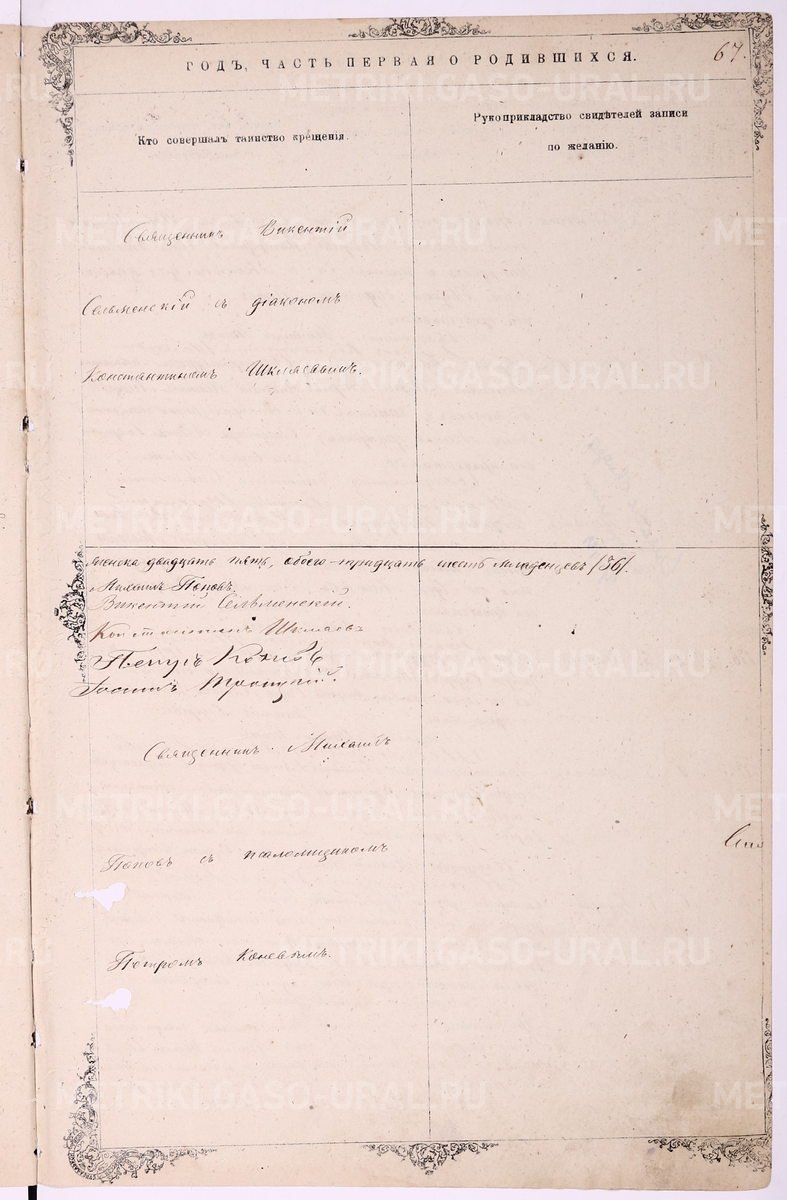 ГОДЪ, ЧАСТЬ ПЕРВАЯ О РОДИВШИХСЯ.
67.
Кто совершалъ таинство крещенія.
Рукоприкладство свидѣтелей записи
по желанію.
Священникъ Викентій
Сельменскій съ діакономъ
Константиномъ Шкляевымъ.
женска двадцать пять, обоего тридцать шесть младенцевъ /36/.
Михаилъ Поповъ.
Викентій Сельменскій.
Константинъ Шкляевъ
Петръ Коневъ
Іоаннъ Троицкій.
Священникъ Михаилъ
Поповъ съ псаломщикомъ
Петромъ Коневымъ.
METRIKI.GASO-URAL.RU